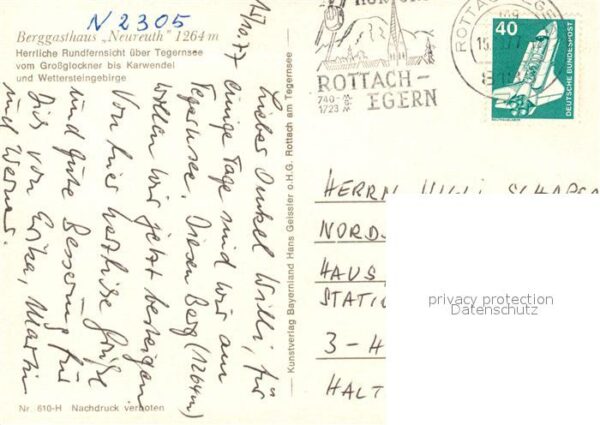 N 2305
Berggasthaus „Neureuth" 1264 m
Herrliche Rundfernsicht über Tegernsee
vom Großglockner bis Karwendel
und Wettersteingebirge
Lieber Onkel Willi, für
einige Tage sind wir am
Tegernsee. Diesen Berg (1264m)
wollen wir jetzt besteigen
Von hier herzliche Grüße
und gute Besserung für
Dich von Erika, Martin
und Werner.
Nr. 610-H Nachdruck verboten
Kunstverlag Bayernland Hans Geissler o.H.G. Rottach am Tegernsee
ROTTACH-
EGERN
740-
1723
ROTTACH-EGERN
40
DEUTSCHE BUNDESPOST
HERRN WILLI
NORDS
HAUS
STATIO
3-H
HALT
privacy protection
Datenschutz